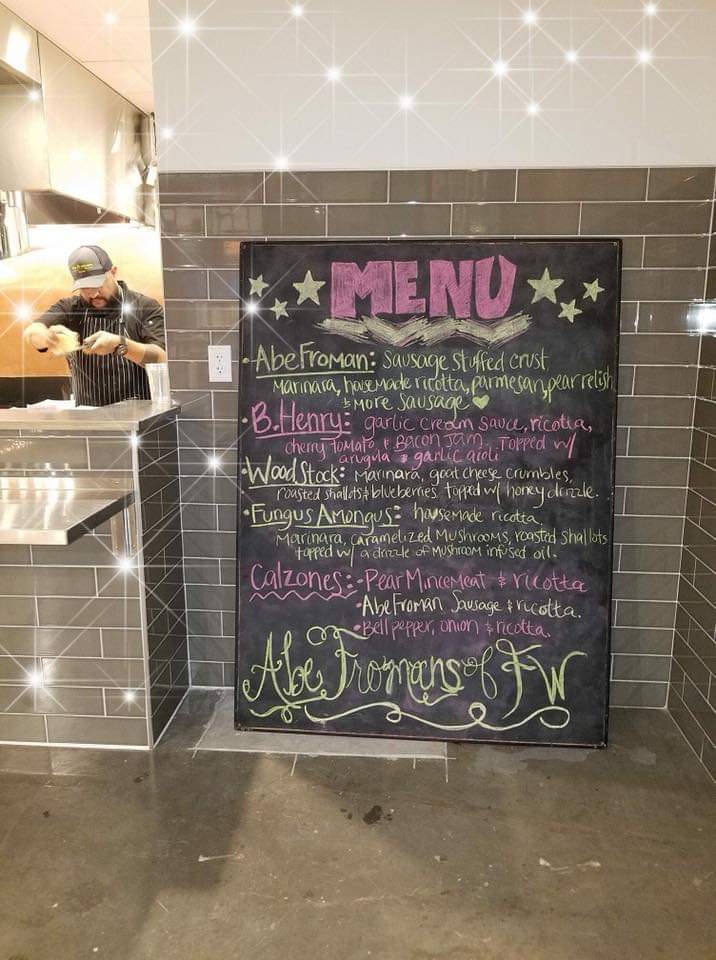 MENU
• Abe Froman: Sausage stuffed crust
Marinara, housemade ricotta, parmesan, pear relish
& More Sausage ♥
• B. Henry: garlic cream sauce, ricotta,
cherry tomato, & Bacon Jam. Topped w/
arugula & garlic aioli
• WoodStock: Marinara, goat cheese crumbles,
roasted shallots & blueberries topped w/ honey drizzle.
• Fungus Amongus: housemade ricotta,
Marinara, caramelized Mushrooms, roasted shallots
topped w/ a drizzle of Mushroom infused oil.
Calzones: - Pear Mincemeat & ricotta
• Abe Froman Sausage & ricotta.
• Bell pepper, onion & ricotta.
Abe Fromans of FW